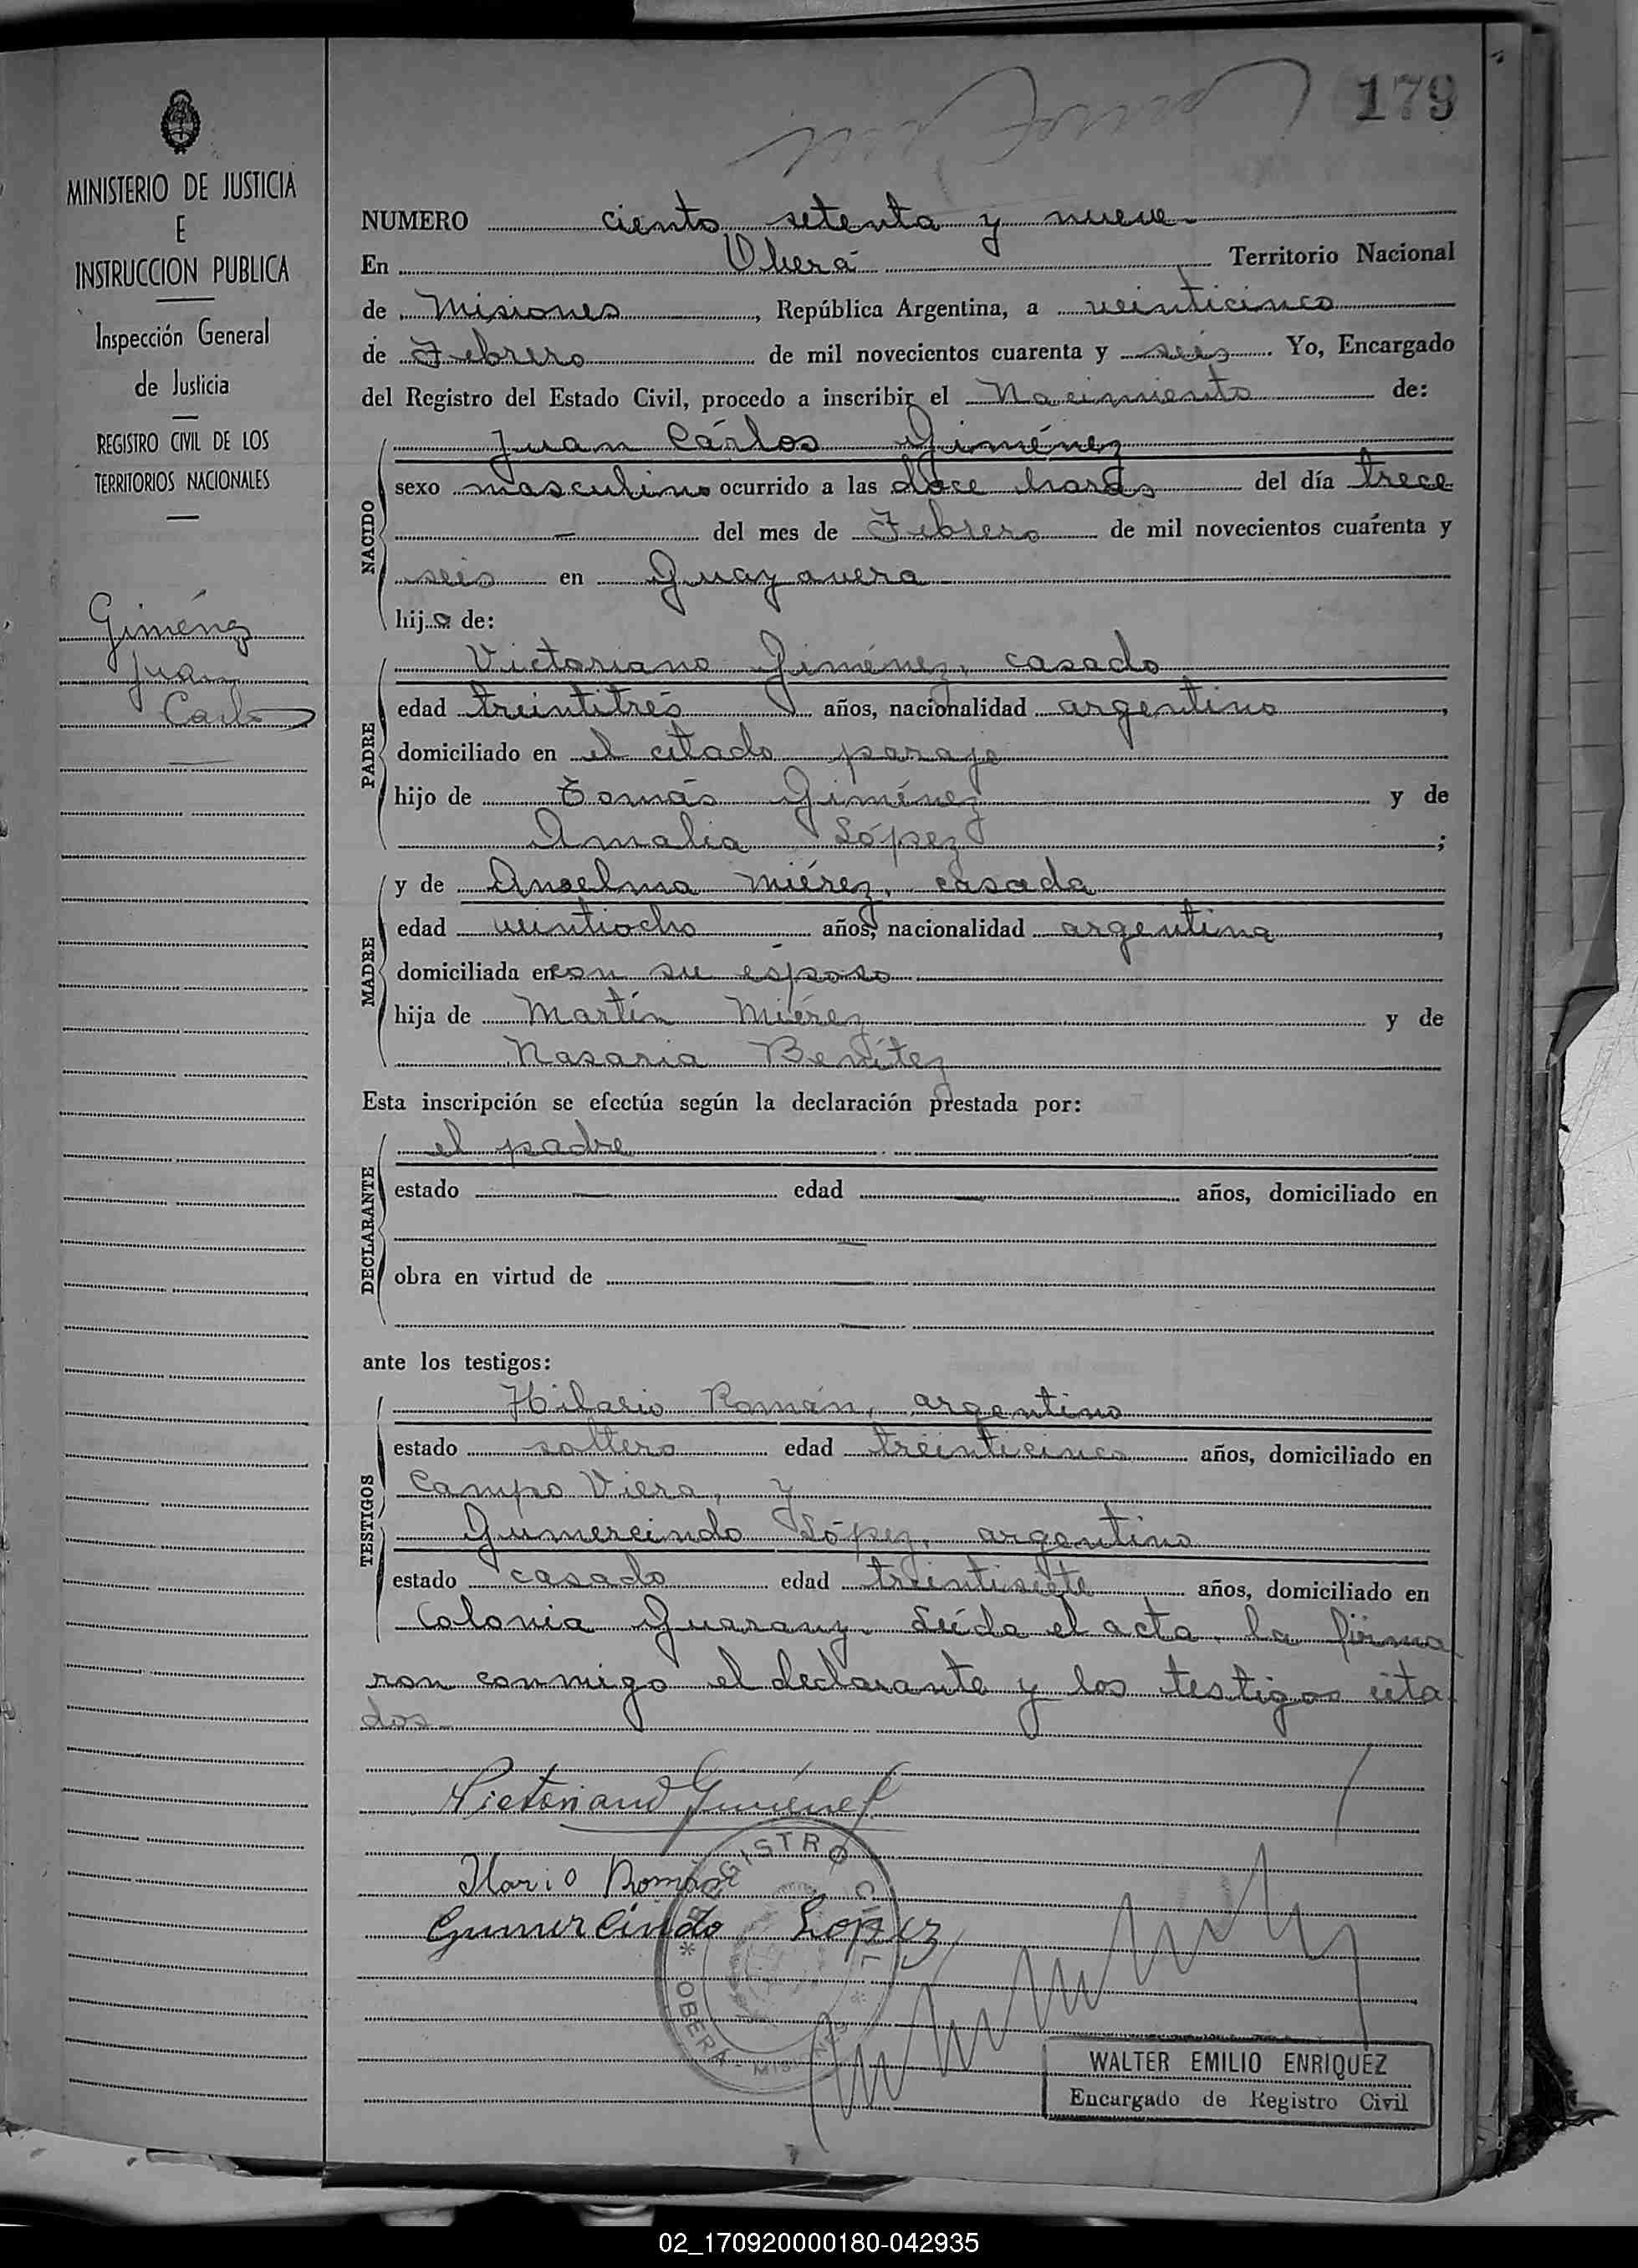 179
MINISTERIO DE JUSTICIA
E
INSTRUCCION PUBLICA
Inspección General
de Justicia
REGISTRO CIVIL DE LOS
TERRITORIOS NACIONALES
Giménez
Juan
Carlos
NUMERO ciento setenta y nueve-
En Oberá Territorio Nacional
de Misiones, República Argentina, a veinticinco
de Febrero de mil novecientos cuarenta y seis. Yo, Encargado
del Registro del Estado Civil, procedo a inscribir el Nacimiento de:
NACIDO
Juan Cárlos Giménez
sexo masculino ocurrido a las doce horas del día trece
— del mes de Febrero de mil novecientos cuarenta y
seis en Guayavera
hijo de:
PADRE
Victoriano Giménez, casado
edad treintitrés años, nacionalidad argentino,
domiciliado en el citado paraje
hijo de Tomás Giménez y de
Amalia López;
MADRE
y de Anselma Miérez, casada
edad veintiocho años, nacionalidad argentina,
domiciliada en con su esposo
hija de Martín Miérez y de
Nasaria Benítez
Esta inscripción se efectúa según la declaración prestada por:
DECLARANTE
el padre
estado — edad — años, domiciliado en
—
obra en virtud de —
—
ante los testigos:
TESTIGOS
Hilario Román, argentino
estado soltero edad treinticinco años, domiciliado en
Campo Viera, y
Gumercindo López, argentino
estado casado edad treintisiete años, domiciliado en
Colonia Guarany. Leída el acta, la firma
ron conmigo el declarante y los testigos cita-
dos-
Victoriano Giménez
Ilario Román
Gumercindo Lopez
REGISTRO CIVIL
* OBERÁ - MISIONES *
WALTER EMILIO ENRIQUEZ
Encargado de Registro Civil
02_170920000180-042935